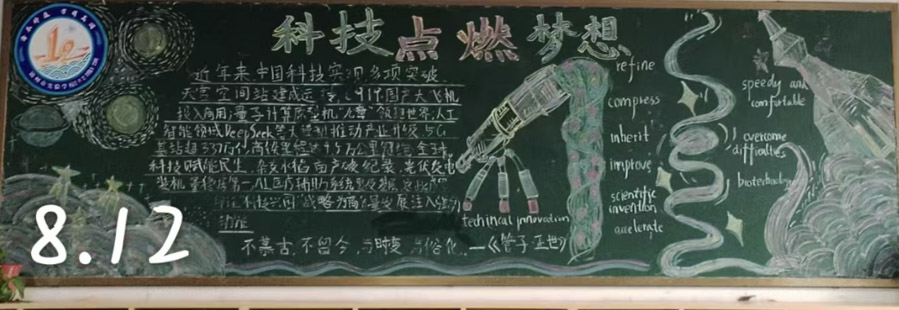 科技点燃梦想
近年来中国科技实现多项突破
天宫空间站建成运 C919国产大飞机
投入商用 量子计算原型机"九章"领跑世界 人工
智能领域DeepSeek等大模型推动产业升级 5G
基站超337万个 高铁里程达 万公里 全球
科技赋能民生 杂交水稻亩产破纪录 光伏发电
装机 第一 AI医疗辅助系统
科技兴国 战略为高质量发展注入强劲
动能
不慕古,不留今,与时变,与俗化.—《管子·正世》
techincal innovation
refine
compress
inherit
improve
scientific
invention
accelerate
speedy and
comfortable
overcome
difficulties
biotechnology
8.12